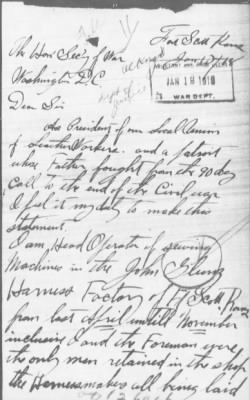 Fort Scott Kans
The Hon! Sec'y of War
Washington D.C.
JAN 18 1918
WAR DEPT.
Dear Sir
As President of our Local Union
of Leather Workers. and a patriot
whose Father fought from the 90 day
call to the end of the Civil war
I feel it my duty to make this
statement.
I am Head Operator of sewing
Machines in the John
Harness Factory of Ft Scott Kans
from last April untill November
inclusive I and the Foreman were
the only men retained in the shop
the Harnessmakers all being laid